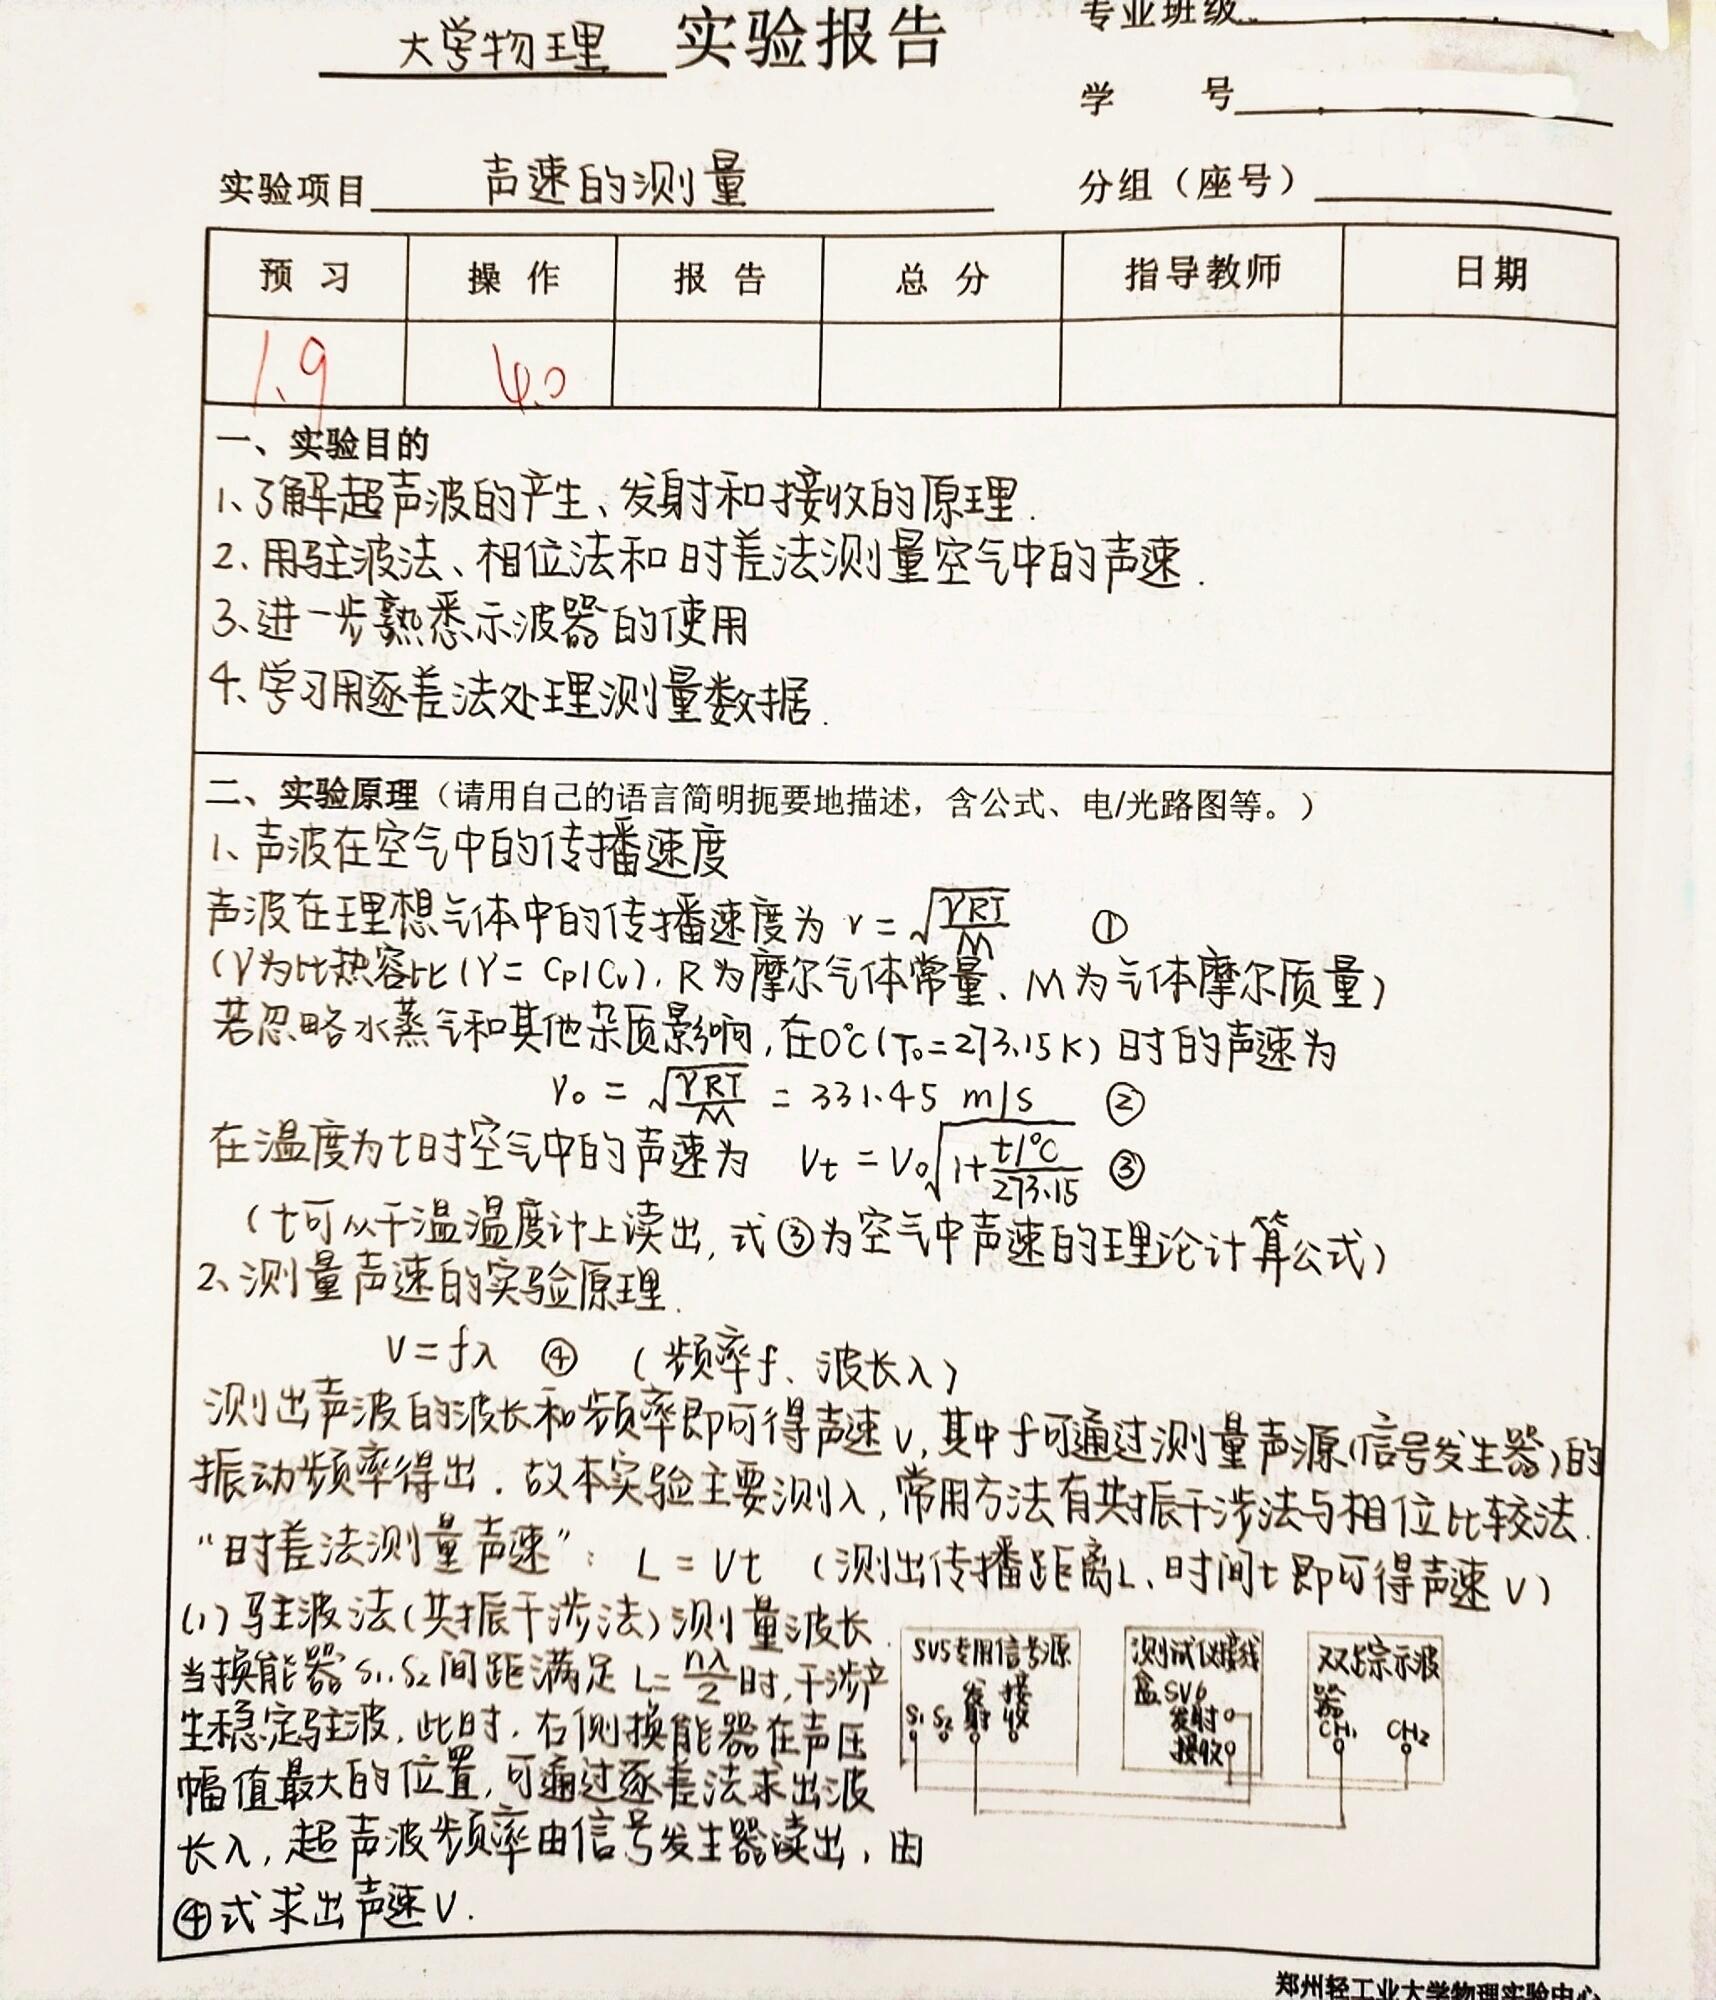 大学物理 实验报告
专业班级
学 号
实验项目 声速的测量
分组（座号）
预 习 操 作 报 告 总 分 指导教师 日期
1.9 4.0
一、实验目的
1、了解超声波的产生、发射和接收的原理.
2、用驻波法、相位法和时差法测量空气中的声速.
3、进一步熟悉示波器的使用
4、学习用逐差法处理测量数据.
二、实验原理（请用自己的语言简明扼要地描述，含公式、电/光路图等。）
1、声波在空气中的传播速度
声波在理想气体中的传播速度为 v = √(γRT/M) ①
(γ为比热容比(γ = Cp/Cv), R为摩尔气体常量、M为气体摩尔质量)
若忽略水蒸气和其他杂质影响,在0℃(T₀=273.15K)时的声速为
v₀ = √(γRT/M) = 331.45 m/s ②
在温度为t时空气中的声速为 Vt = V₀√(1+(t/℃)/273.15) ③
(t可从干温温度计上读出, 式③为空气中声速的理论计算公式)
2、测量声速的实验原理.
V=fλ ④ (频率f、波长λ)
测出声波的波长和频率即可得声速V,其中f可通过测量声源(信号发生器)的
振动频率得出.故本实验主要测λ,常用方法有共振干涉法与相位比较法.
“时差法测量声速”: L = Vt (测出传播距离L、时间t即可得声速V)
(1)驻波法(共振干涉法)测量波长.
当换能器S₁、S₂间距满足 L=nλ/2 时,干涉产
生稳定驻波,此时,右侧换能器在声压
幅值最大的位置,可通过逐差法求出波
长λ,超声波频率由信号发生器读出,由
④式求出声速V.
SV5专用信号源
S₁ S₂ 发射 接收
测试仪接线
盒SV6
发射
接收
双踪示波
器
CH₁ CH₂
郑州轻工业大学物理实验中心